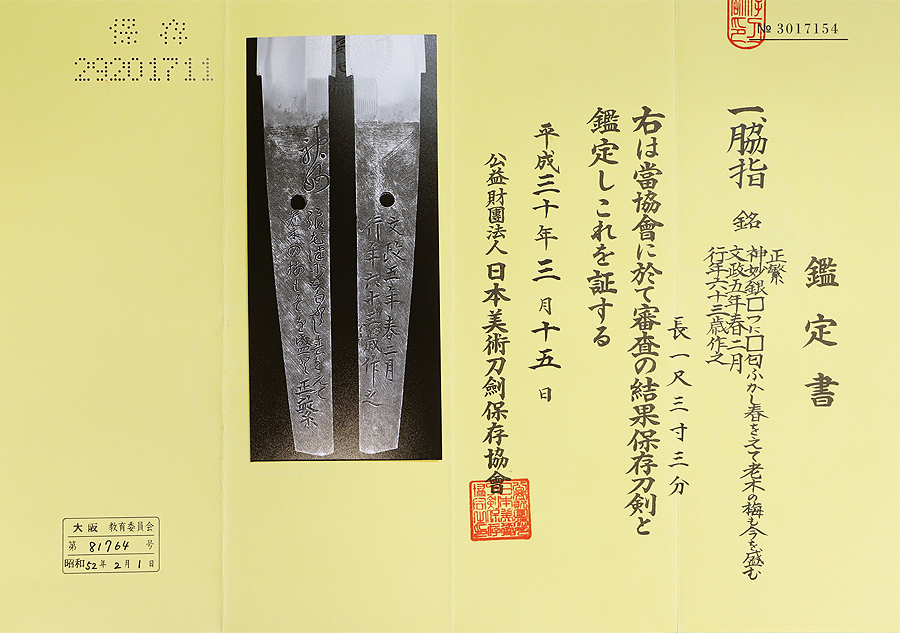 № 3017154
鑑定書
一、脇指 銘
正繁
神妙銀□つに□匂ふかし春をえて老木の梅も今を盛む
文政五年春二月
行年六十三歳作之
長一尺三寸三分
右は當協會に於て審査の結果保存刀剣と
鑑定しこれを証する
平成三十年三月十五日
公益財團法人日本美術刀劍保存協會
文政五年春二月
行年六十三歳作之
保存
29201711
大阪 教育委員会
第 81764 号
昭和52年2月1日